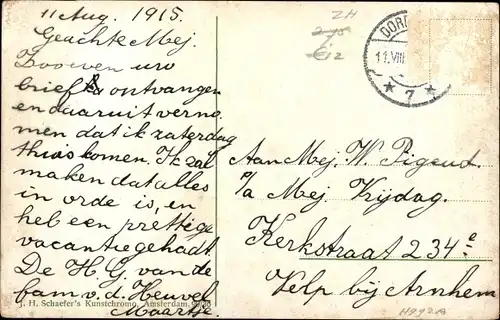 11 Aug. 1915.
Geachte Mej.
Zooeven uw
brief ontvangen
en daaruit verno.
men dat ik zaterdag
thuis komen. Ik zal
maken dat alles
in orde is, en
heb een prettige
vacantie gehad.
De H. G. van de
fam v. d. Heuvel
Maartje.
J. H. Schaefer's Kunstchromo, Amsterdam.
ZH
€12
DOR
11.VIII
* 7 *
Aan Mej. W. Pigeud.
p/a Mej Vrijdag.
Kerkstraat 234 e
Velp bij Arnhem
H992A